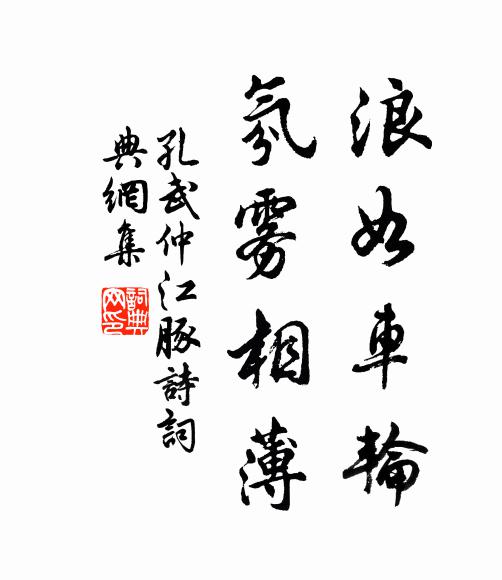 浪如車輪
氛霧相薄
孔武仲江豚詩詞
典網集
詞典網印